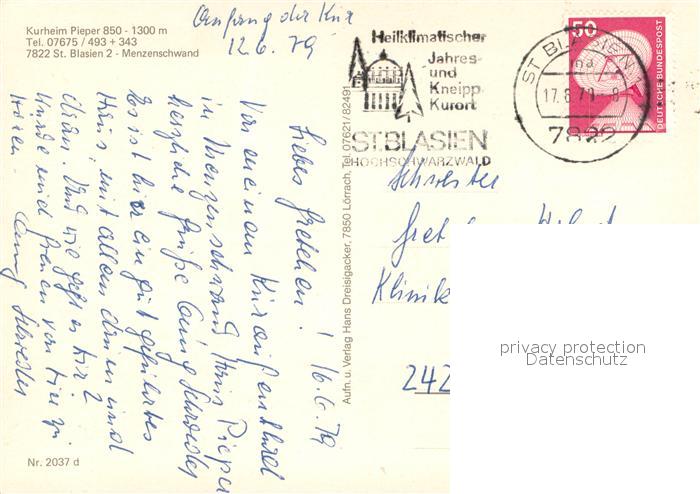 Kurheim Pieper 850 - 1300 m
Tel. 07675 / 493 + 343
7822 St. Blasien 2 - Menzenschwand
Anfang der Kur
12.6.79
Heilklimatischer
Jahres-
und
Kneipp
Kurort
ST. BLASIEN
HOCHSCHWARZWALD
ST BLASIEN
17.8.79-8
7822
50
DEUTSCHE BUNDESPOST
Liebes Gretchen! 16.6.79
Von meinem Kuraufenthalt
in Menzenschwand Haus Pieper
herzliche Grüße Schwester
Es ist hier ein gut geführtes
Haus mit allem drinnen und
dran. Und wie geht es Dir?
Würde mich freuen von Dir zu
hören. Schwester
Aufn. u. Verlag Hans Dreisigacker, 7850 Lörrach, Tel. 07621/82491
Schwester
Klinik
242
privacy protection
Datenschutz
Nr. 2037 d